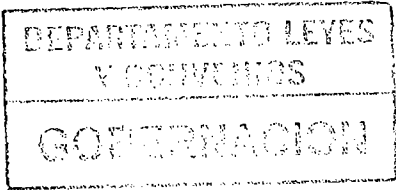 DEPARTAMENTO LEYES
Y CONVENIOS
GOBERNACION